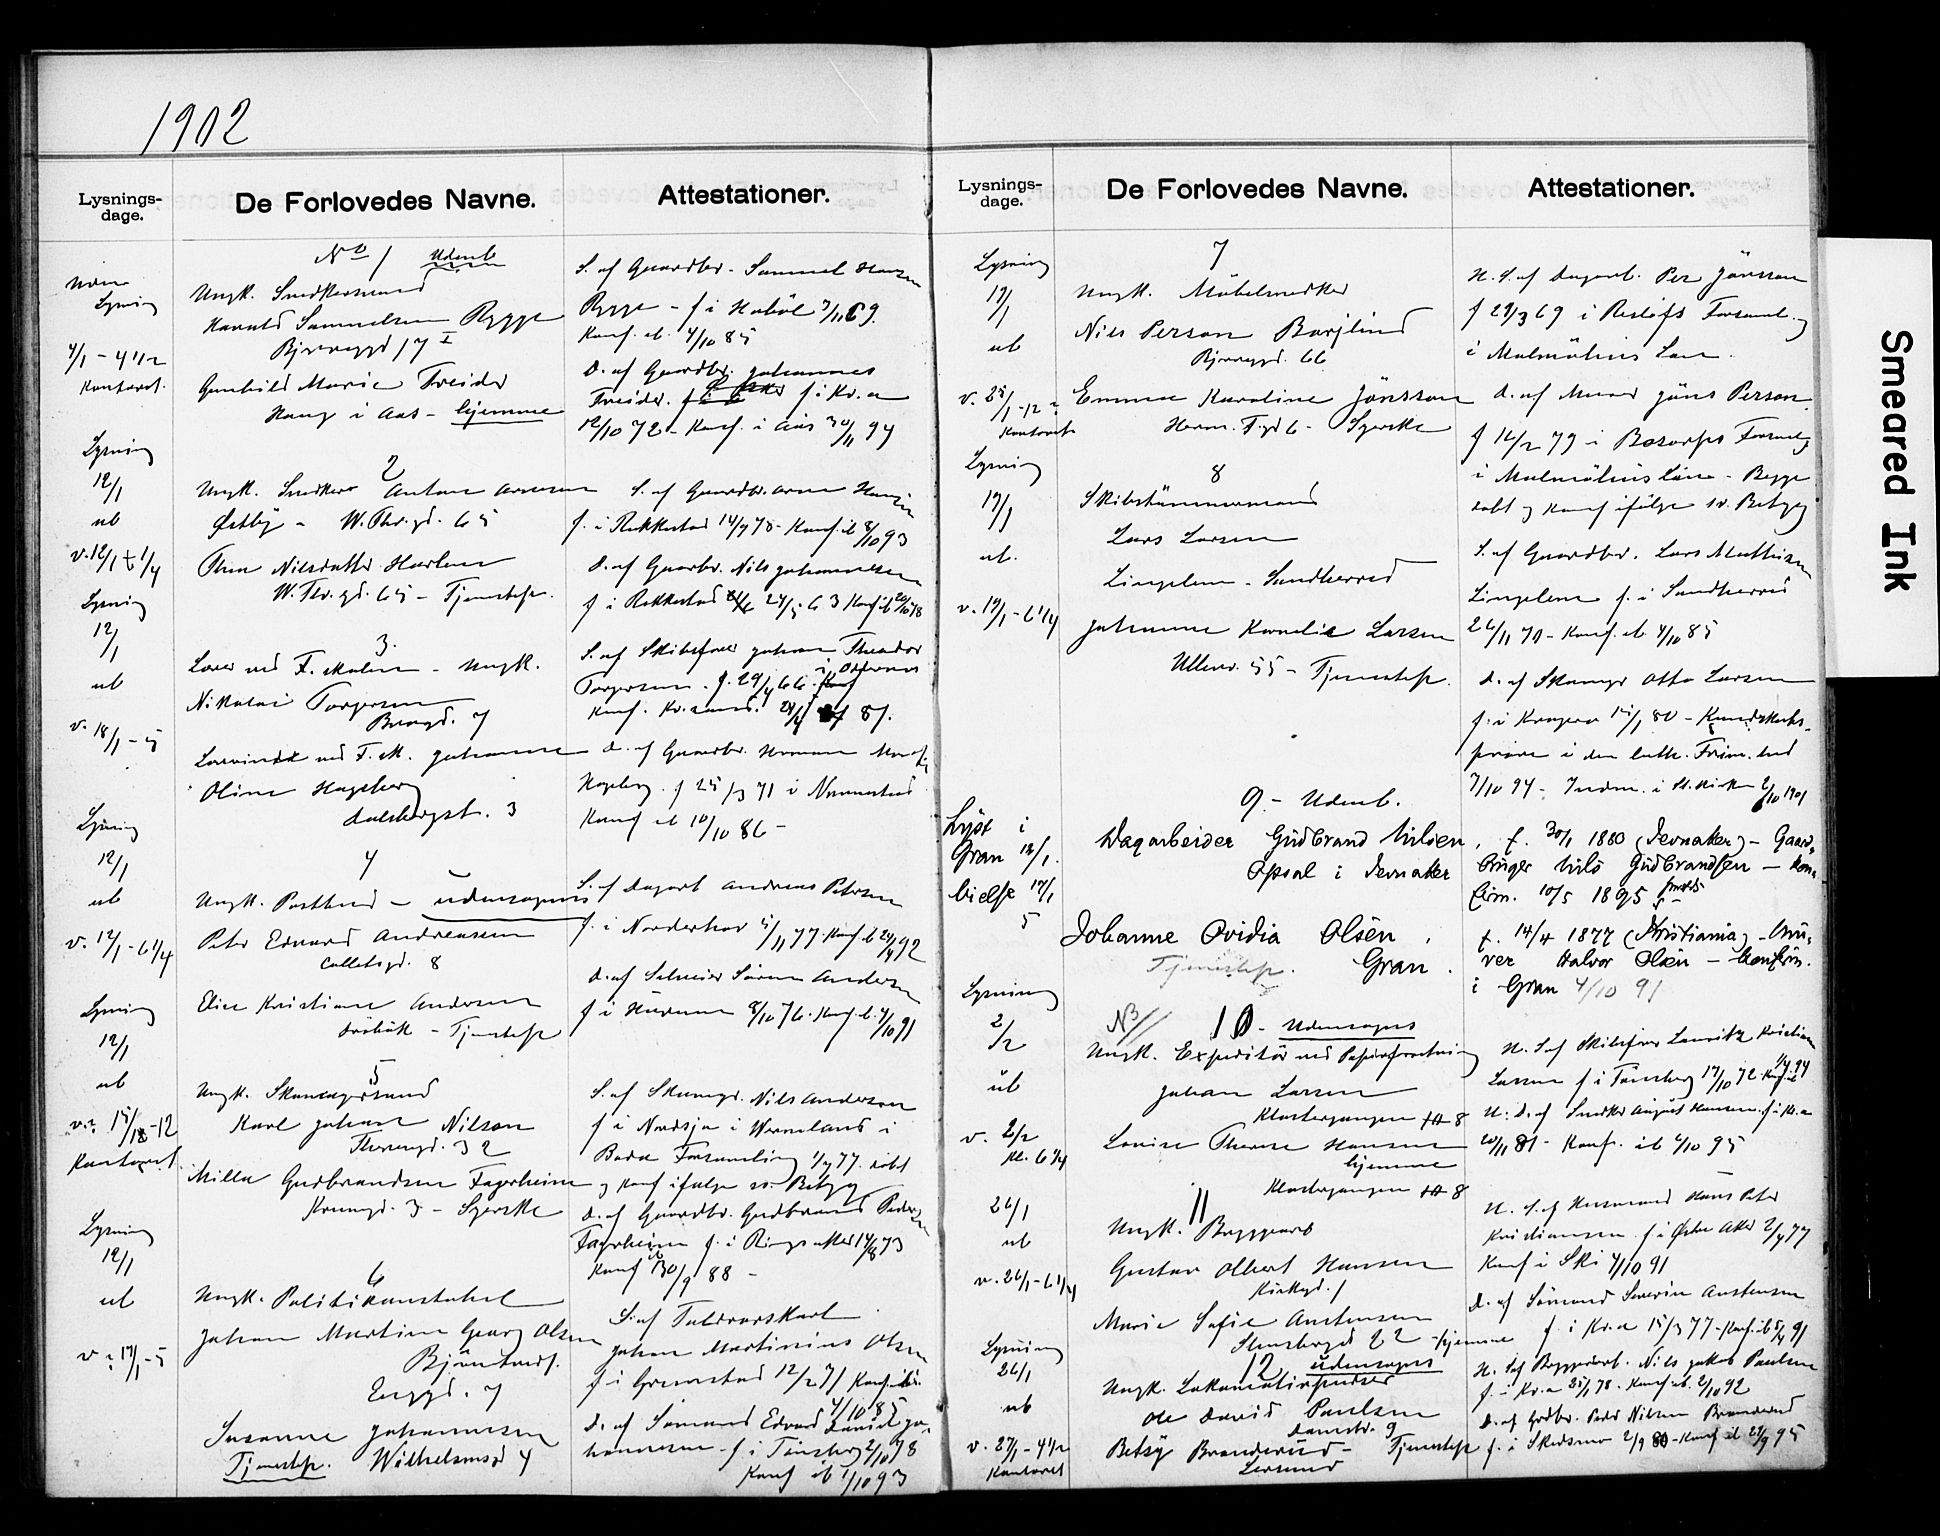 1902
Lysnings-
dage.
De Forlovedes Navne.
Attestationer.
No 1 Udenb
Lysning
Ungk. Snedkersvend
Harald Samuelsen Rygge
17 I
4/1 - 4 1/2
Kontoret.
Gunhild Marie Treider
Haug i Aas - hjemme
S. af Gaardbr. Samuel Hansen
Rygge - f i Haböl 7/11 69.
Konf. ib. 4/10 85
D. af Gaardbr. Johannes
Treider. f. i Kr.a
12/10 72 - Konf. i Aas 30/11 94
Lysning
12/1
ub
v. 12/1 1/4
2
Ungk. Snedker Anton Arnesen
Østby - W. Thr.gd. 65
Nilsdatter Harlem
W. Thr.gd. 65 - Tjenestep.
S. af Gaardbr. Arne Hansen
f. i Rakkestad 14/9 78 - Konf. ib 8/10 93
D. af Gaardbr. Nils Johannesen
f i Rakkestad 63 Konf ib 78
Lysning
12/1
ub
v. 18/1 - 5
3.
ved F. Malm - Ungk.
Nikolai Torgersen
7
ved F. M. Johanne
Oline Hagsberg
Dalsbergst. 3
S. af Skibsfører Johan Theodor
Torgersen. f. 29/4 66
Konf. Kr.sand. 81.
D. af Gaardbr. Herman
f 25/3 71 i Nannestad
Konf ib 10/10 86 -
Lysning
12/1
ub
v. 12/1 - 6 1/4
4
Ungk. Postbud - udensogns
Peter Edvard Andreassen
Colletsgd. 8
Elise Kristiane Andersen
Dröbak - Tjenestep
S. af Dagarb Andreas Petersen
f. i Norderhov 5/11 77. Konf. ib 92
D. af Salmager Sören Andersen
f i Hurum 8/10 76. Konf. ib. 4/10 91
Lysning
12/1
ub
-12
Kontoret
5
Ungk. Skomagersvend
Karl Johan Nilson
32
Milla Gudbrandsen Fagerheim
3 - Syerske
S. af Skomgr. Nils Anderson
f i i Wermeland i
Boda Forsamling 1/9 77. döbt
og Konf ifølge sv. Betyg
D. af Gaardbr. Gudbrand Pedersen
Fagerheim f. i Ringsaker 73
Konf ib 30/9 88 -
Lysning
12/1
ub
v: 19/1 - 5
6
Ungk. Politikonstabel
Johan Martin Georg Olsen
Enggd. 7
Susanne Johannesen
Tjenestep. Wilhelmsgd 4
S. af Toldvorskarl
Johan Martinius Olsen
f i Grimstad 12/2 71 Konf. ib.
4/10 85
D. af Sömand Edvard Daniel Jo-
hannesen - f i Tönsberg 2/10 78
Konf ib 1/10 93
Lysnings-
dage.
De Forlovedes Navne.
Attestationer.
Lysning
19/1
ub
v. 25/1 - 12
Kontoret
7
Ungk. Möbelsnedker
Nils Person Borjlind
66
Emma Karoline Jönsson
6 - Syerske
U. S. af Dagarb. Per Jönsson
f 29/3 69 i Reslöfs Forsaml.
i Malmöhus Län.
D. af Murer Jöns Person.
f 16/2 79 i Bosarps Forsaml
i Malmöhus Län - Begge
döbt og Konf ifölge sv. Betyg
Lysning
19/1
ub.
v. 19/1 - 6 1/4
8
Skibstömmermand
Lars Larsen
Lingelem - Sandherred
Johanne Kornelia Larsen
Ullev. 55 - Tjenestep.
S. af Gaardbr. Lars Mathisen
Lingelem f. i Sandherred
26/11 70 - Konf. ib 4/10 85
D. af Skomgr Otto Larsen
f. i Kragerø 15/1 80 - Kundskabs-
pröve i den luth. Frim.
7/10 94 - Indm. i St. kirken 2/10 1901
Lyst i
Gran 12/1.
Vielse 17/1
5
9 - Udenb.
Dagarbeider Gudbrand Nilsen,
Opsal i Jevnaker
Johanne Ovidia Olsen,
Tjenestep. Gran.
f. 30/1 1880 (Jevnaker) - Gaard-
bruger Nils Gudbrandsen - kon-
firm. 10/5 1895
f. 14/4 1877 (Kristiania) - Mu-
rer Halvor Olsen - konfirm.
i Gran 4/10 91
Lysning
2/2
ub
v. 2/2
Kl. 6 1/4
NB
10 - Udensogns
Ungk. Expeditör ved Papirforretning
Johan Larsen
Klostergangen 8
Louise Therese Hansen
hjemme
Klostergangen 8
U. S. af Skibsfører Lauritz Kristian
Larsen f i Tönsberg 17/10 72 Konf ib
U. D. af Snedker August Hansen f i Kr.a
20/11 81 - Konf. ib 6/10 95
26/1
ub
v. 26/1 - 6 1/4
11
Ungk. Byggearb
Gustav Olbert Hansen
Kirkegd. 1
Marie Sofie Austensen
Stensbergd 22 - hjemme
U. S. af Husmand Hans Peter
Kristiansen f. i Østre Aker 77
Konf i Ski 4/10 91
D. af Sömand Severin Austensen
f. i Kr.a 15/3 77 - Konf. ib 91
Lysning
26/1
ub
v. 27/1 - 4 1/2
Kontoret
12 udensogns
Ungk. Lokomotivpudser
Ole David Paulsen
9
Betsy Branderud - Tjenestep
Lersund
U. S. af Byggearb. Nils Jakob Paulsen
f. i Kr.a 25/1 78. Konf. ib. 2/10 92
D. af Grdbr. Peder Nilsen Branderud
f. i Skedsmo 2/9 80 - Konf ib 29/9 95
Smeared Ink